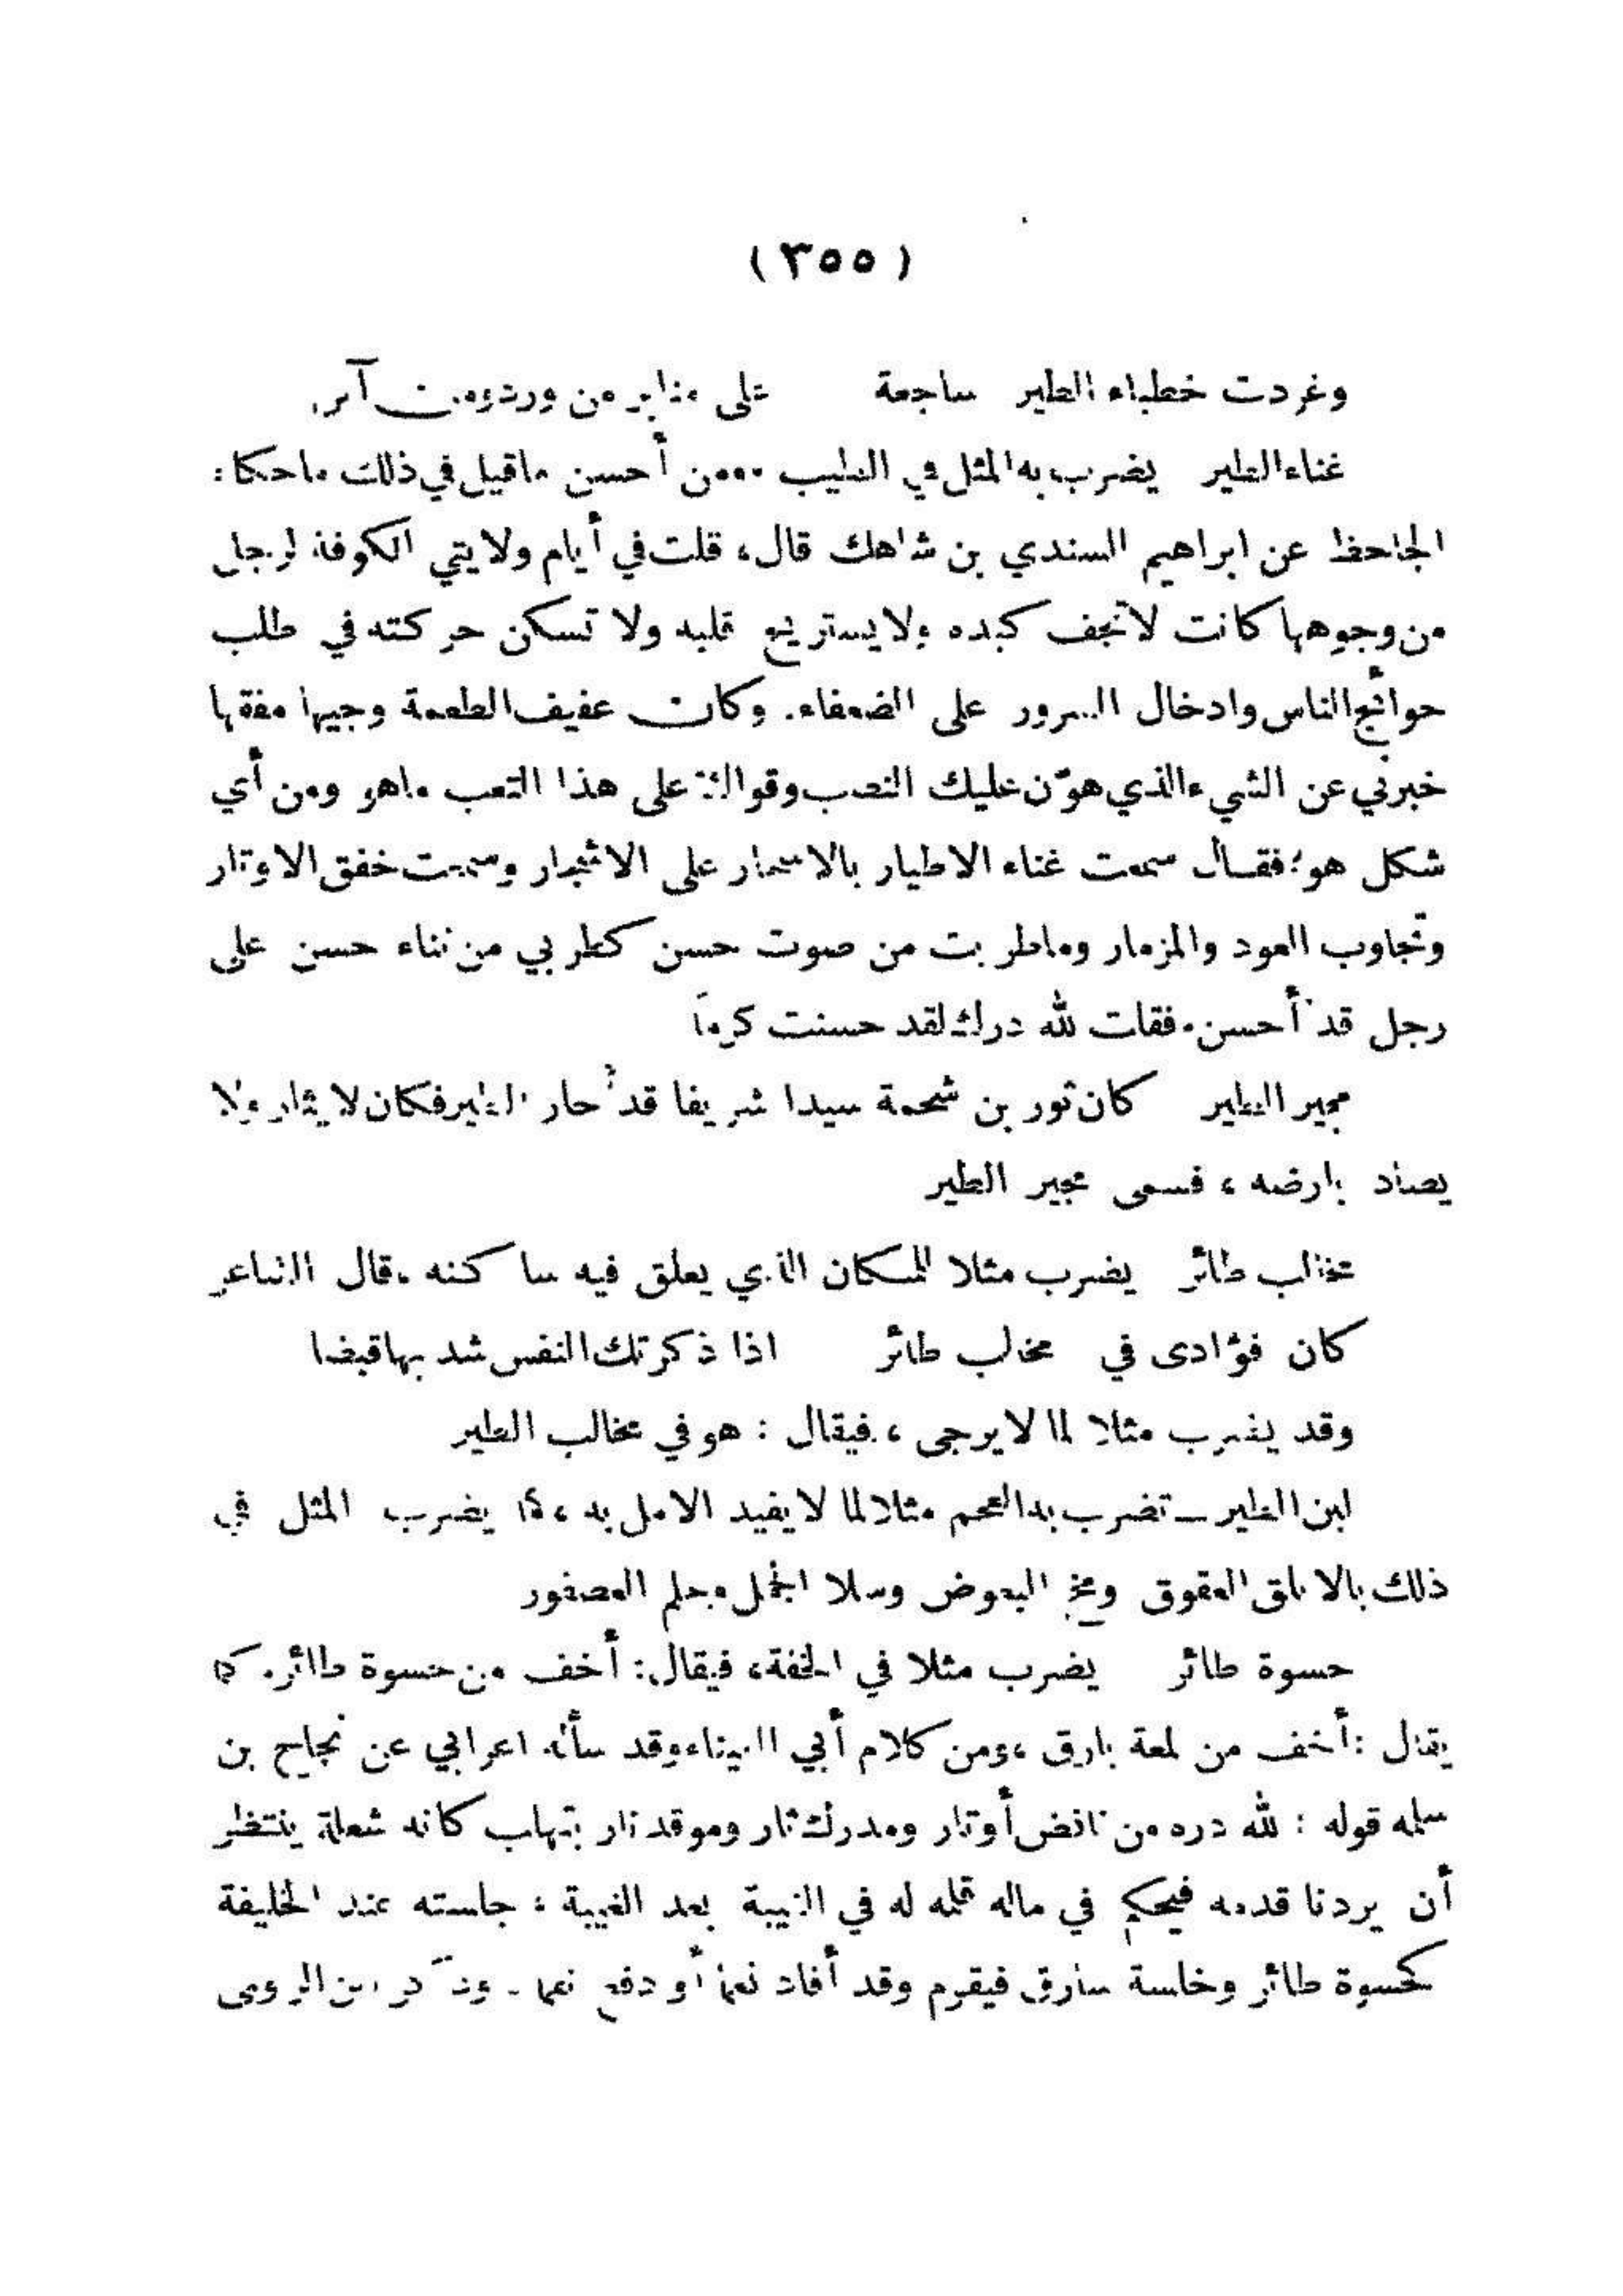 ( ٣٥٥ )
وغردت خطباء الطير ساجعة على منابر من ورد ومن آس
غناء الطير يضرب به المثل في الطيب ومن أحسن ماقيل في ذلك ماحكاه
الجاحظ عن ابراهيم السندي بن شاهك قال، قلت في أيام ولايتي الكوفة لرجل
من وجوهها كانت لاتجف كبده ولايستريح قلبه ولا تسكن حركته في طلب
حوائج الناس وادخال السرور على الضعفاء. وكان عفيف الطعمة وجيها مفقها
خبرني عن الشيء الذي هوّن عليك النصب وقواك على هذا التعب ماهو ومن أي
شكل هو؛ فقال سمعت غناء الاطيار بالاسحار على الاشجار وسمعت خفق الاوتار
وتجاوب العود والمزمار وماطربت من صوت حسن كطربي من ثناء حسن على
رجل قد أحسن. فقلت لله درك لقد حسنت كرماً
مجير الطير كان ثور بن شحمة سيدا شريفا قد أجار الطير فكان لا يثار ولا
يصاد بارضه ، فسمى مجير الطير
مخالب طائر يضرب مثلا للمكان الذي يعلق فيه ساكنه . قال الشاعر
كان فؤادى في مخالب طائر اذا ذكرتك النفس شد بها قبضا
وقد يضرب مثلا لما لا يرجى ، فيقال : هو في مخالب الطير
ابن الطير ــ تضرب به العجم مثلا لما لا يفيد الامل به ، كما يضرب المثل في
ذلك بالابلق العقوق ومخ البعوض وسلا الجمل وحلم العصفور
حسوة طائر يضرب مثلا في الخفة، فيقال: أخف من حسوة طائر. كما
يقال : أخف من لمعة بارق ، ومن كلام أبي العيناء وقد سأله اعرابي عن نجاح بن
سلمه قوله : لله دره من ناقض أوتار ومدرك ثار وموقد نار يتهاب كانه شعلة ينتظر
أن يردنا قدمه فيحكم في ماله قلمه له في الغيبة بعد الغيبة ؛ جلسته عند الخليفة
كحسوة طائر وخلسة سارق فيقوم وقد أفاد نعما أو دفع نقما . وذكر ابن الرومى